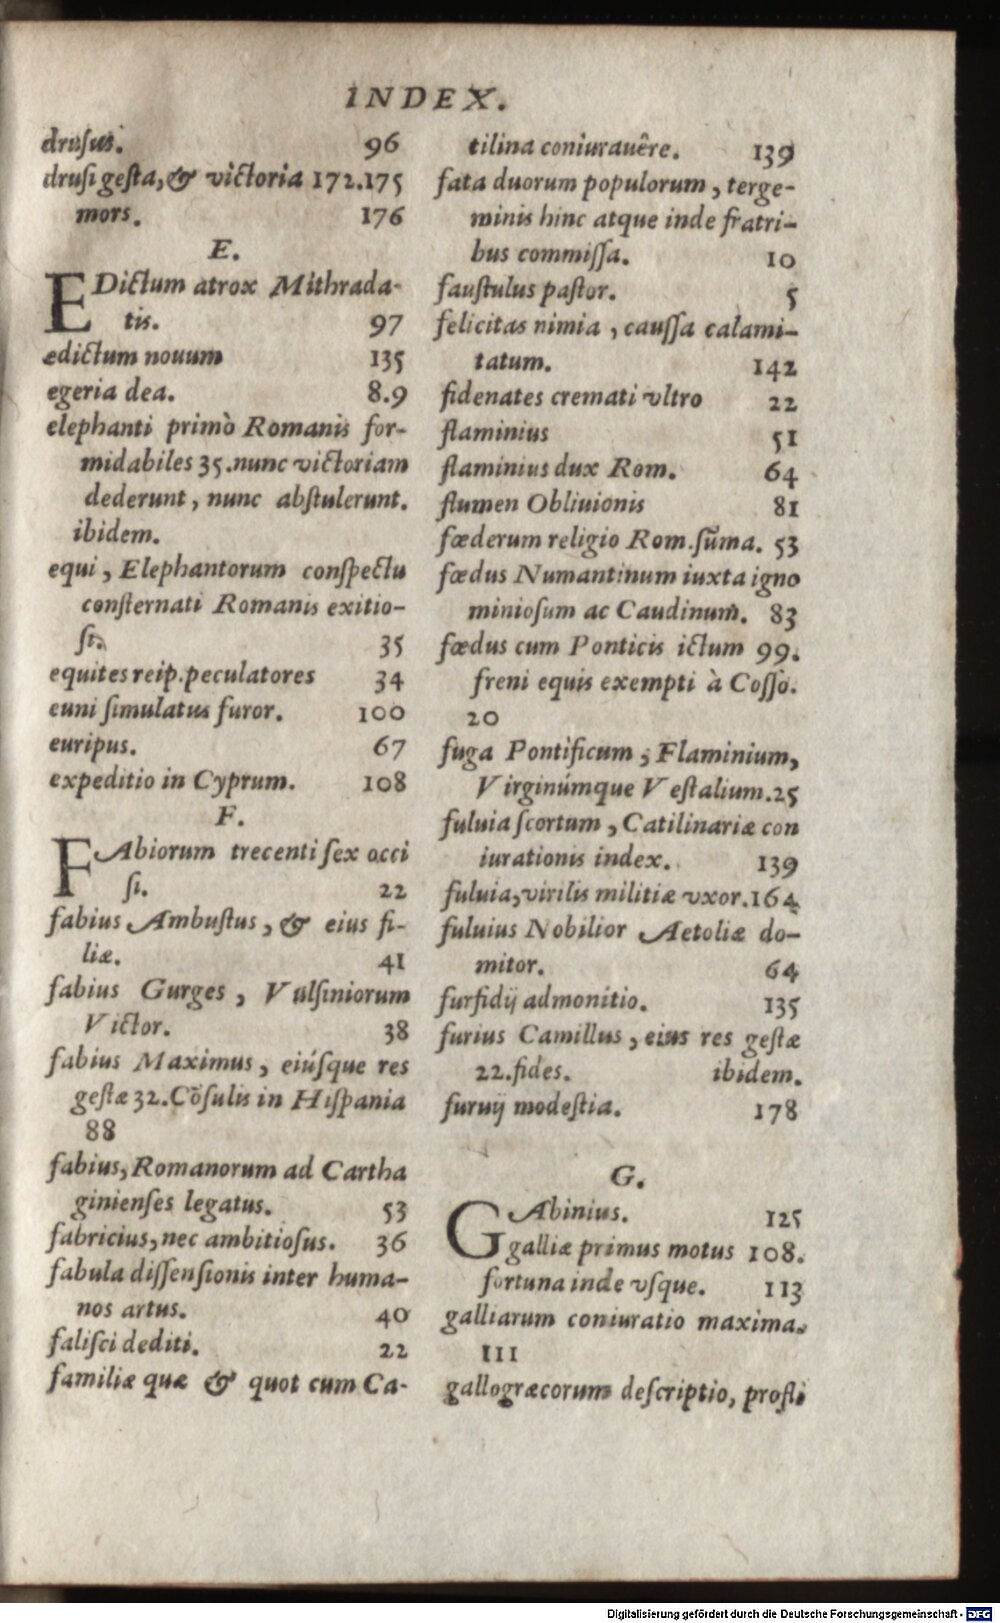 INDEX.
drusus. 96
drusi gesta, & victoria 172.175
mors. 176
E.
EDictum atrox Mithrada-
tis. 97
edictum nouum 135
egeria dea. 8.9
elephanti primò Romanis for-
midabiles 35.nunc victoriam
dederunt, nunc abstulerunt.
ibidem.
equi, Elephantorum conspectu
consternati Romanis exitio-
si. 35
equites reip.peculatores 34
euni simulatus furor. 100
euripus. 67
expeditio in Cyprum. 108
F.
FAbiorum trecenti sex occi
si. 22
fabius Ambustus, & eius fi-
liæ. 41
fabius Gurges, Vulsiniorum
Victor. 38
fabius Maximus, eiúsque res
gestæ 32.Cõsulis in Hispania
88
fabius, Romanorum ad Cartha
ginienses legatus. 53
fabricius, nec ambitiosus. 36
fabula dissensionis inter huma-
nos artus. 40
falisci dediti. 22
familiæ quæ & quot cum Ca-
tilina coniurauêre. 139
fata duorum populorum, terge-
minis hinc atque inde fratri-
bus commissa. 10
faustulus pastor. 5
felicitas nimia, caussa calami-
tatum. 142
fidenates cremati vltro 22
flaminius 51
flaminius dux Rom. 64
flumen Obliuionis 81
fœderum religio Rom.sũma. 53
fœdus Numantinum iuxta igno
miniosum ac Caudinum. 83
fœdus cum Ponticis ictum 99.
freni equis exempti à Cosso.
20
fuga Pontificum, Flaminium,
Virginúmque Vestalium.25
fuluia scortum, Catilinariæ con
iurationis index. 139
fuluia, virilis militiæ vxor.164
fuluius Nobilior Aetoliæ do-
mitor. 64
furfidij admonitio. 135
furius Camillus, eius res gestæ
22.fides. ibidem.
furuij modestia. 178
G.
GAbinius. 125
galliæ primus motus 108.
fortuna inde vsque. 113
galliarum coniuratio maxima.
111
gallogræcorum descriptio, profli
Digitalisierung gefördert durch die Deutsche Forschungsgemeinschaft - DFG